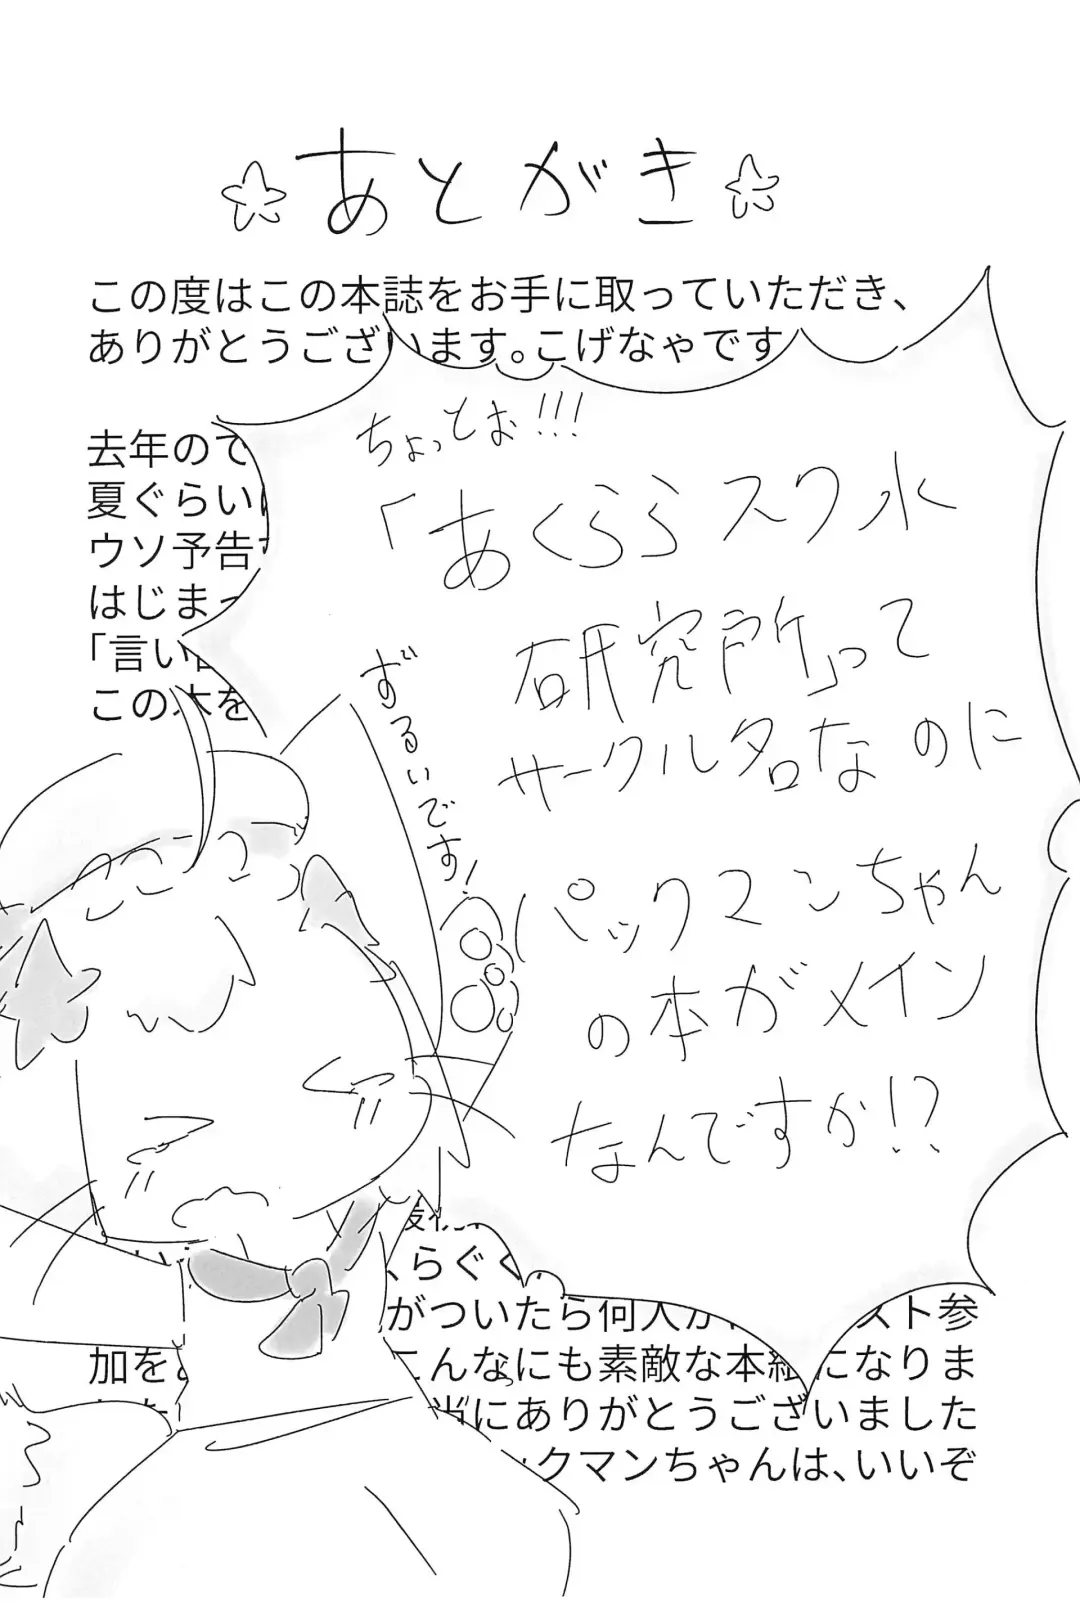 ☆あとがき☆
この度はこの本誌をお手に取っていただき、
ありがとうございます。こげなゃです
去年ので
夏ぐらい
ウソ予告
はじまっ
「言い
この本を
ちょっとぉ!!!
「あくららスク水
研究所」って
サークル名なのに
パックマンちゃん
の本がメイン
なんですか!?
ずるいです!
、らぐ
がついたら何人か スト参
加を こんなにも素敵な本 になりま
当にありがとうございました
ックマンちゃんは、いいぞ